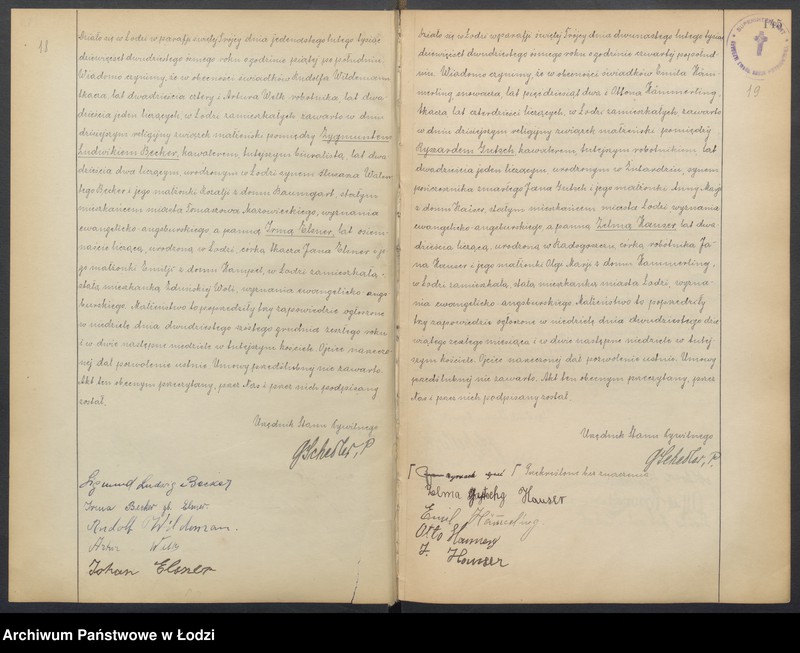 18
Działo się w Łodzi w parafji świętej Trójcy dnia jedenastego lutego tysiąc
dziewięćset dwudziestego ósmego roku o godzinie piątej popołudniu.
Wiadomo czynimy, że w obecności świadków Rudolfa Wildemana
tkacza, lat dwadzieścia cztery i Artura Welk robotnika, lat dwa-
dzieścia jeden liczących, w Łodzi zamieszkałych, zawarto w dniu
dzisiejszym religijny związek małżeński pomiędzy Zygmuntem
Ludwikiem Becker, kawalerem, tutejszym biuralistą, lat dwa
dzieścia dwa liczącym, urodzonym w Łodzi synem tkacza
Becker i jego małżonki Rozalji z domu Baumgart, stałym
mieszkańcem miasta Tomaszowa Mazowieckiego, wyznania
ewangelicko-augsburskiego, a panną Irmą Elsner, lat osiem-
naście liczącą, urodzoną w Łodzi, córką tkacza Jana Elsner i je-
go małżonki Emilji z domu Hampel, w Łodzi zamieszkałą,
stałą mieszkanką Zduńskiej Woli, wyznania ewangelicko-augs-
burskiego. Małżeństwo to poprzedziły trzy zapowiedzie ogłoszone
w niedzielę dnia dwudziestego szóstego grudnia zeszłego roku
i w dwie następne niedziele w tutejszym kościele. Ojciec narzeczo-
nej dał pozwolenie ustnie. Umowy przedślubnej nie zawarto.
Akt ten obecnym przeczytany, przez Nas i przez nich podpisany
został.
Urzędnik Stanu Cywilnego
GSchedler, P.
Zygmund Ludwig Becker
Irma Becker gb Elsner
Rudolf Wildeman.
Artur Welk
Johan Elsner
145
19
Działo się w Łodzi w parafji świętej Trójcy dnia dwunastego lutego tysiąc
dziewięćset dwudziestego ósmego roku o godzinie czwartej popołud-
niu. Wiadomo czynimy, że w obecności świadków Emila Häm-
merling snowacza, lat pięćdziesiąt dwa i Ottona Hämmerling
tkacza lat czterdzieści liczących, w Łodzi zamieszkałych, zawarto
w dniu dzisiejszym religijny związek małżeński pomiędzy
Ryszardem Gutsch kawalerem, tutejszym robotnikiem, lat
dwadzieścia jeden liczącym, urodzonym w synem
zmarłego Jana Gutsch i jego małżonki Anny Marji
z domu Kaiser, stałym mieszkańcem miasta Łodzi wyznania
ewangelicko-augsburskiego, a panną Zelmą Hauser, lat dwa-
dzieścia liczącą, urodzoną w Radogoszczu, córką robotnika Ja-
na Hauser i jego małżonki Olgi Marji z domu Hammerling,
w Łodzi zamieszkałą, stałą mieszkanką miasta Łodzi, wyzna-
nia ewangelicko-augsburskiego. Małżeństwo to poprzedziły
trzy zapowiedzie ogłoszone w niedzielę dnia dwudziestego dzie
wiątego zeszłego miesiąca i w dwie następne niedziele w tutej
szym kościele. Ojciec narzeczonej dał pozwolenie ustnie. Umowy
przedślubnej nie zawarto. Akt ten obecnym przeczytany, przez
Nas i przez nich podpisany został.
Urzędnik Stanu Cywilnego
GSchedler, P.
Przekreślone bez znaczenia
Zelma Hauser
Emil Hämmerling.
Otto
J. Hauser
Archiwum Państwowe w Łodzi